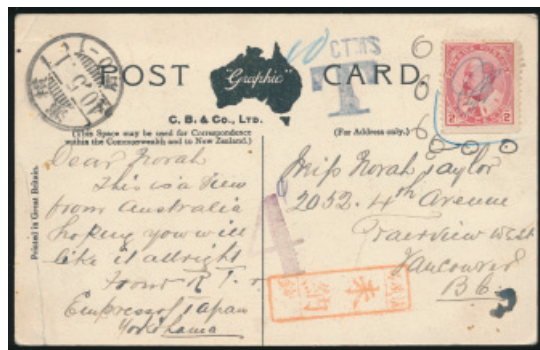 POST CARD
"Graphic"
C. B. & Co., LTD.
(This Space may be used for Correspondence
within the Commonwealth and to New Zealand.)
(For Address only.)
Printed in Great Britain.
10
CTMS
T
CANADA POSTAGE
2 2
Dear Norah
This is a View
from Australia
hoping you will
like it allright
from R. T.
Empress of Japan
Yokohama
Miss Norah Taylor
2052. 4th Avenue
Fairview West
Vancouver
B.C.
未納